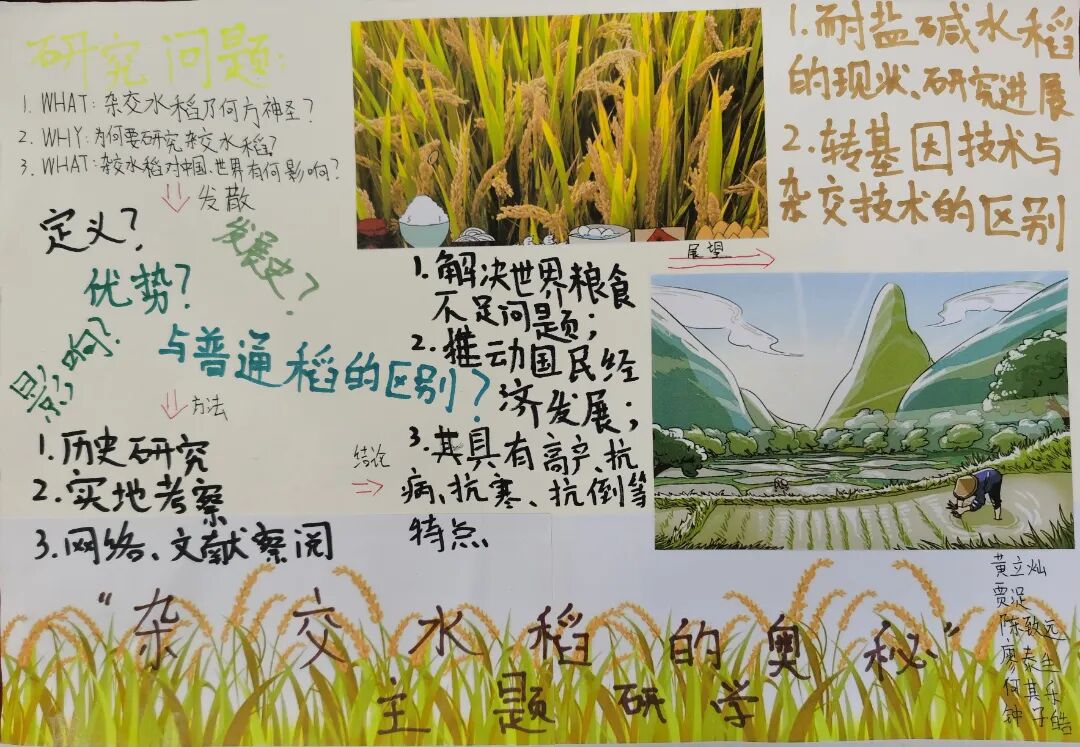 研究问题:
1. WHAT: 杂交水稻乃何方神圣?
2. WHY: 为何要研究杂交水稻?
3. WHAT: 杂交水稻对中国、世界有何影响?
发散
定义?
发展史?
优势?
影响?
与普通稻的区别?
方法
1.历史研究
2.实地考察
3.网络、文献察阅
结论
1.解决世界粮食
不足问题;
2.推动国民经
济发展;
3.其具有高产、抗
病、抗寒、抗倒等
特点
展望
1.耐盐碱水稻
的现状、研究进展
2.转基因技术与
杂交技术的区别
黄立灿
贾浞
陈致远
廖泰生
何其乐
钟子皓
“杂交水稻的奥秘”
主题研学